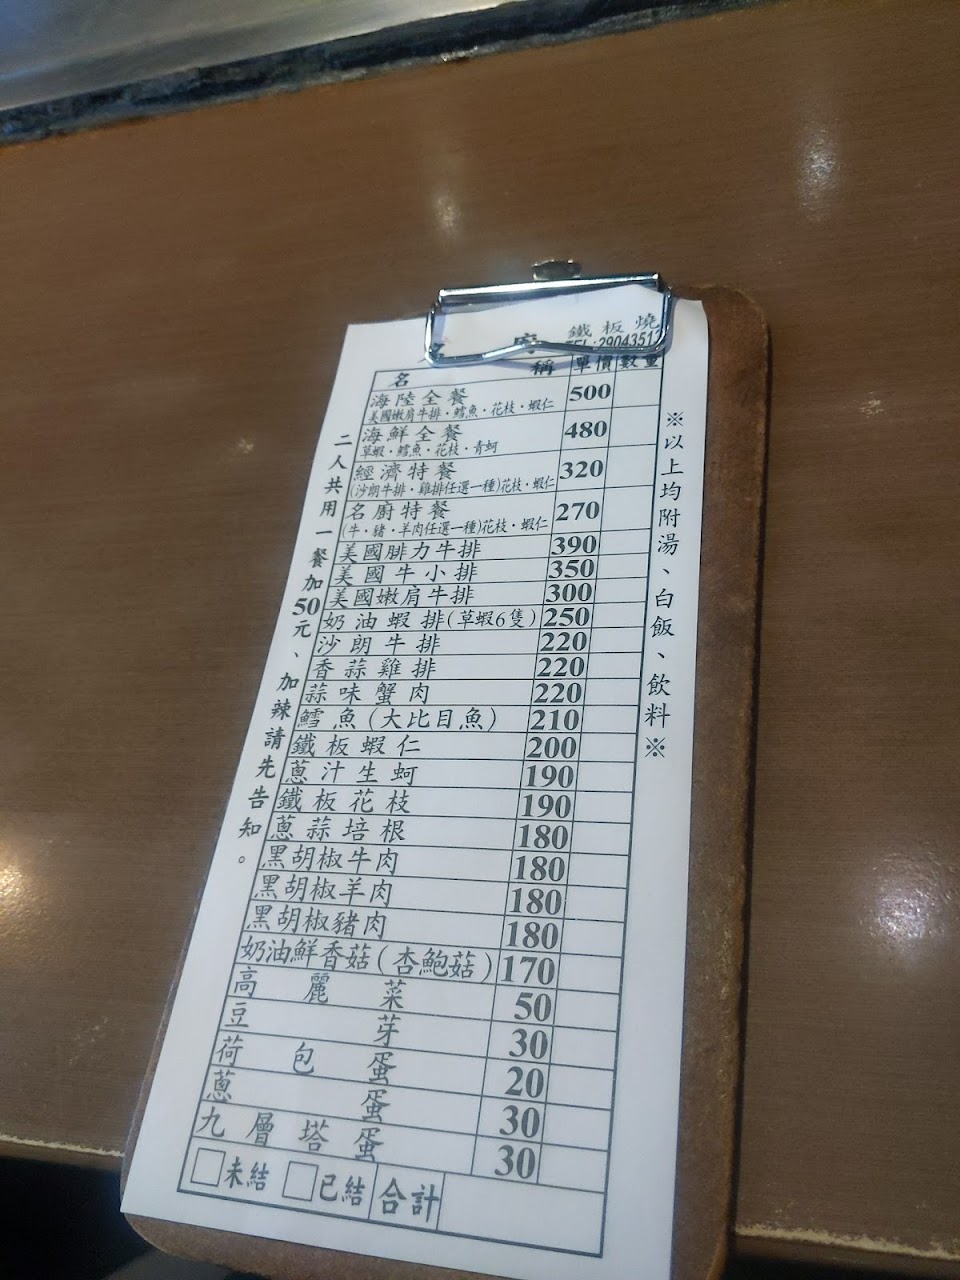 名 廚 鐵板燒
TEL:29043512
名 稱 單價 數量
海陸全餐 500
美國嫩肩牛排・鱈魚・花枝・蝦仁
海鮮全餐 480
草蝦・鱈魚・花枝・青蚵
經濟特餐 320
(沙朗牛排・雞排任選一種)花枝・蝦仁
名廚特餐 270
(牛・豬・羊肉任選一種)花枝・蝦仁
美國腓力牛排 390
美國牛小排 350
美國嫩肩牛排 300
奶油蝦排(草蝦6隻) 250
沙朗牛排 220
香蒜雞排 220
蒜味蟹肉 220
鱈魚(大比目魚) 210
鐵板蝦仁 200
蔥汁生蚵 190
鐵板花枝 190
蔥蒜培根 180
黑胡椒牛肉 180
黑胡椒羊肉 180
黑胡椒豬肉 180
奶油鮮香菇(杏鮑菇) 170
高麗菜 50
豆芽 30
荷包蛋 20
蔥蛋 30
九層塔蛋 30
□未結 □已結 合計
二人共用一餐加50元、加辣請先告知。
※以上均附湯、白飯、飲料※